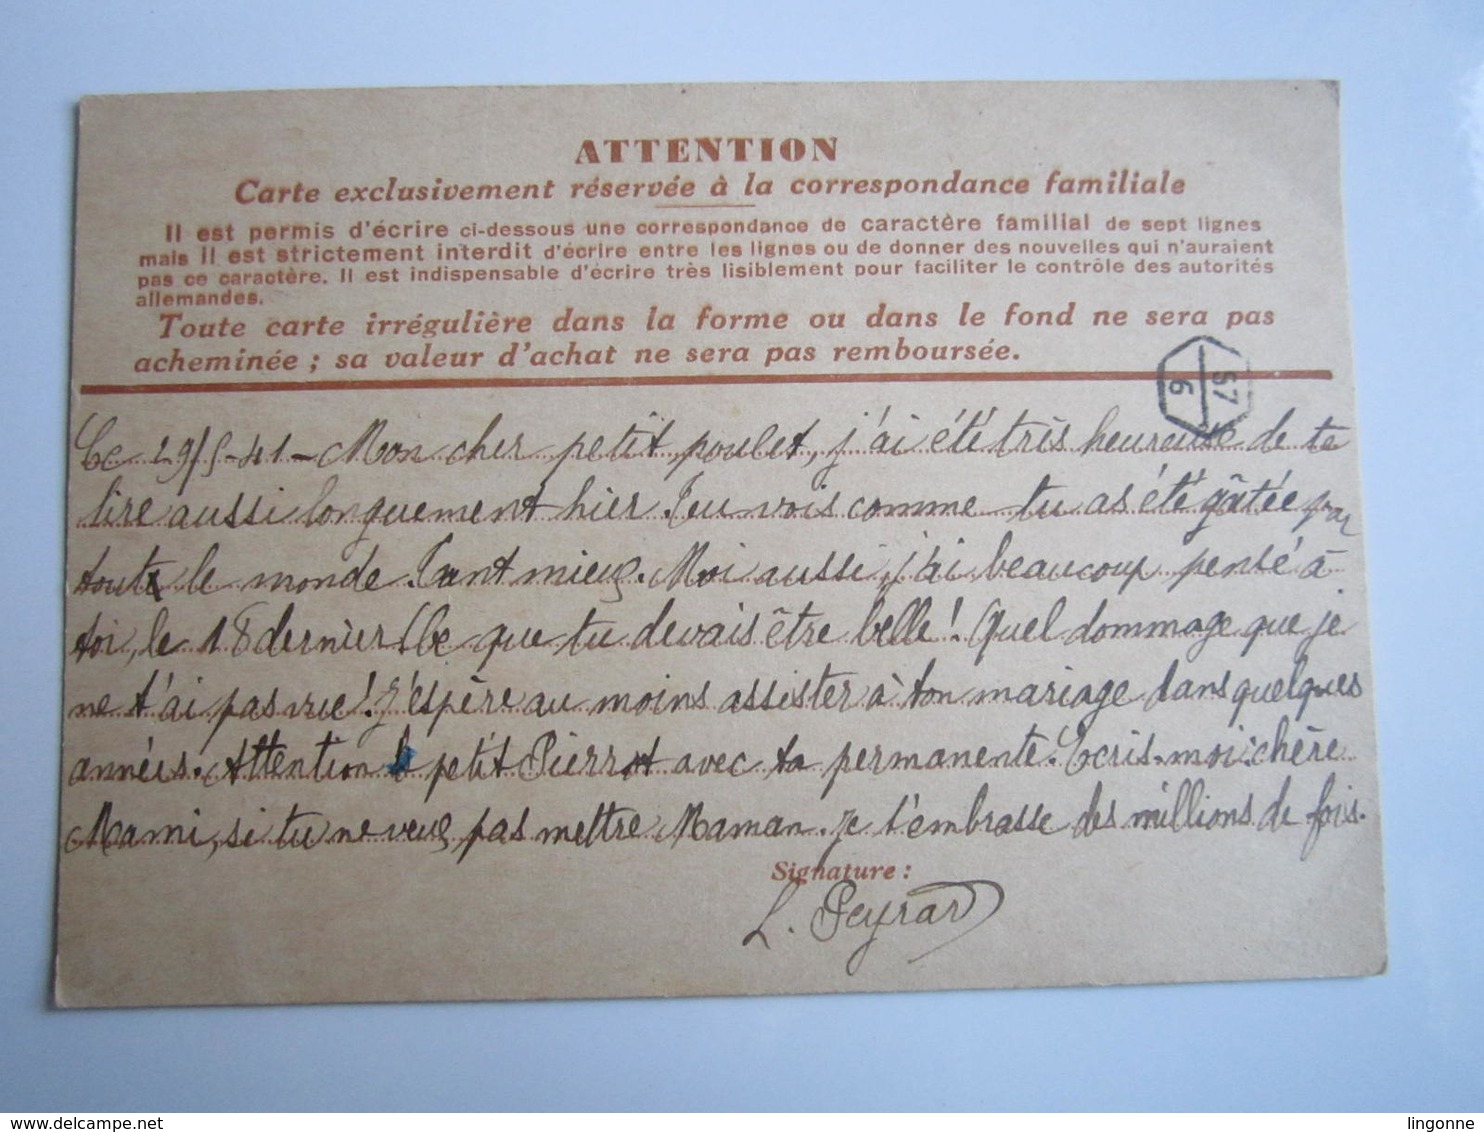 ATTENTION
Carte exclusivement réservée à la correspondance familiale
Il est permis d'écrire ci-dessous une correspondance de caractère familial de sept lignes
mais il est strictement interdit d'écrire entre les lignes ou de donner des nouvelles qui n'auraient
pas ce caractère. Il est indispensable d'écrire très lisiblement pour faciliter le contrôle des autorités
allemandes.
Toute carte irrégulière dans la forme ou dans le fond ne sera pas
acheminée ; sa valeur d'achat ne sera pas remboursée.
57
6
Ce 29/5-41 - Mon cher petit poulet, j'ai été très heureuse de te
lire aussi longuement hier. Tu vois comme tu as été gâtée par
tout le monde. Tant mieux. Moi aussi, j'ai beaucoup pensé à
toi, le 18 dernier. Ce que tu devais être belle! Quel dommage que je
ne t'ai pas vue! J'espère au moins assister à ton mariage dans quelques
années. Attention petit Pierrot avec ta permanente. Ecris-moi: chère
Mami, si tu ne veux pas mettre Maman. Je t'embrasse des millions de fois.
Signature :
L. Peyrard
www.delcampe.net
lingonne